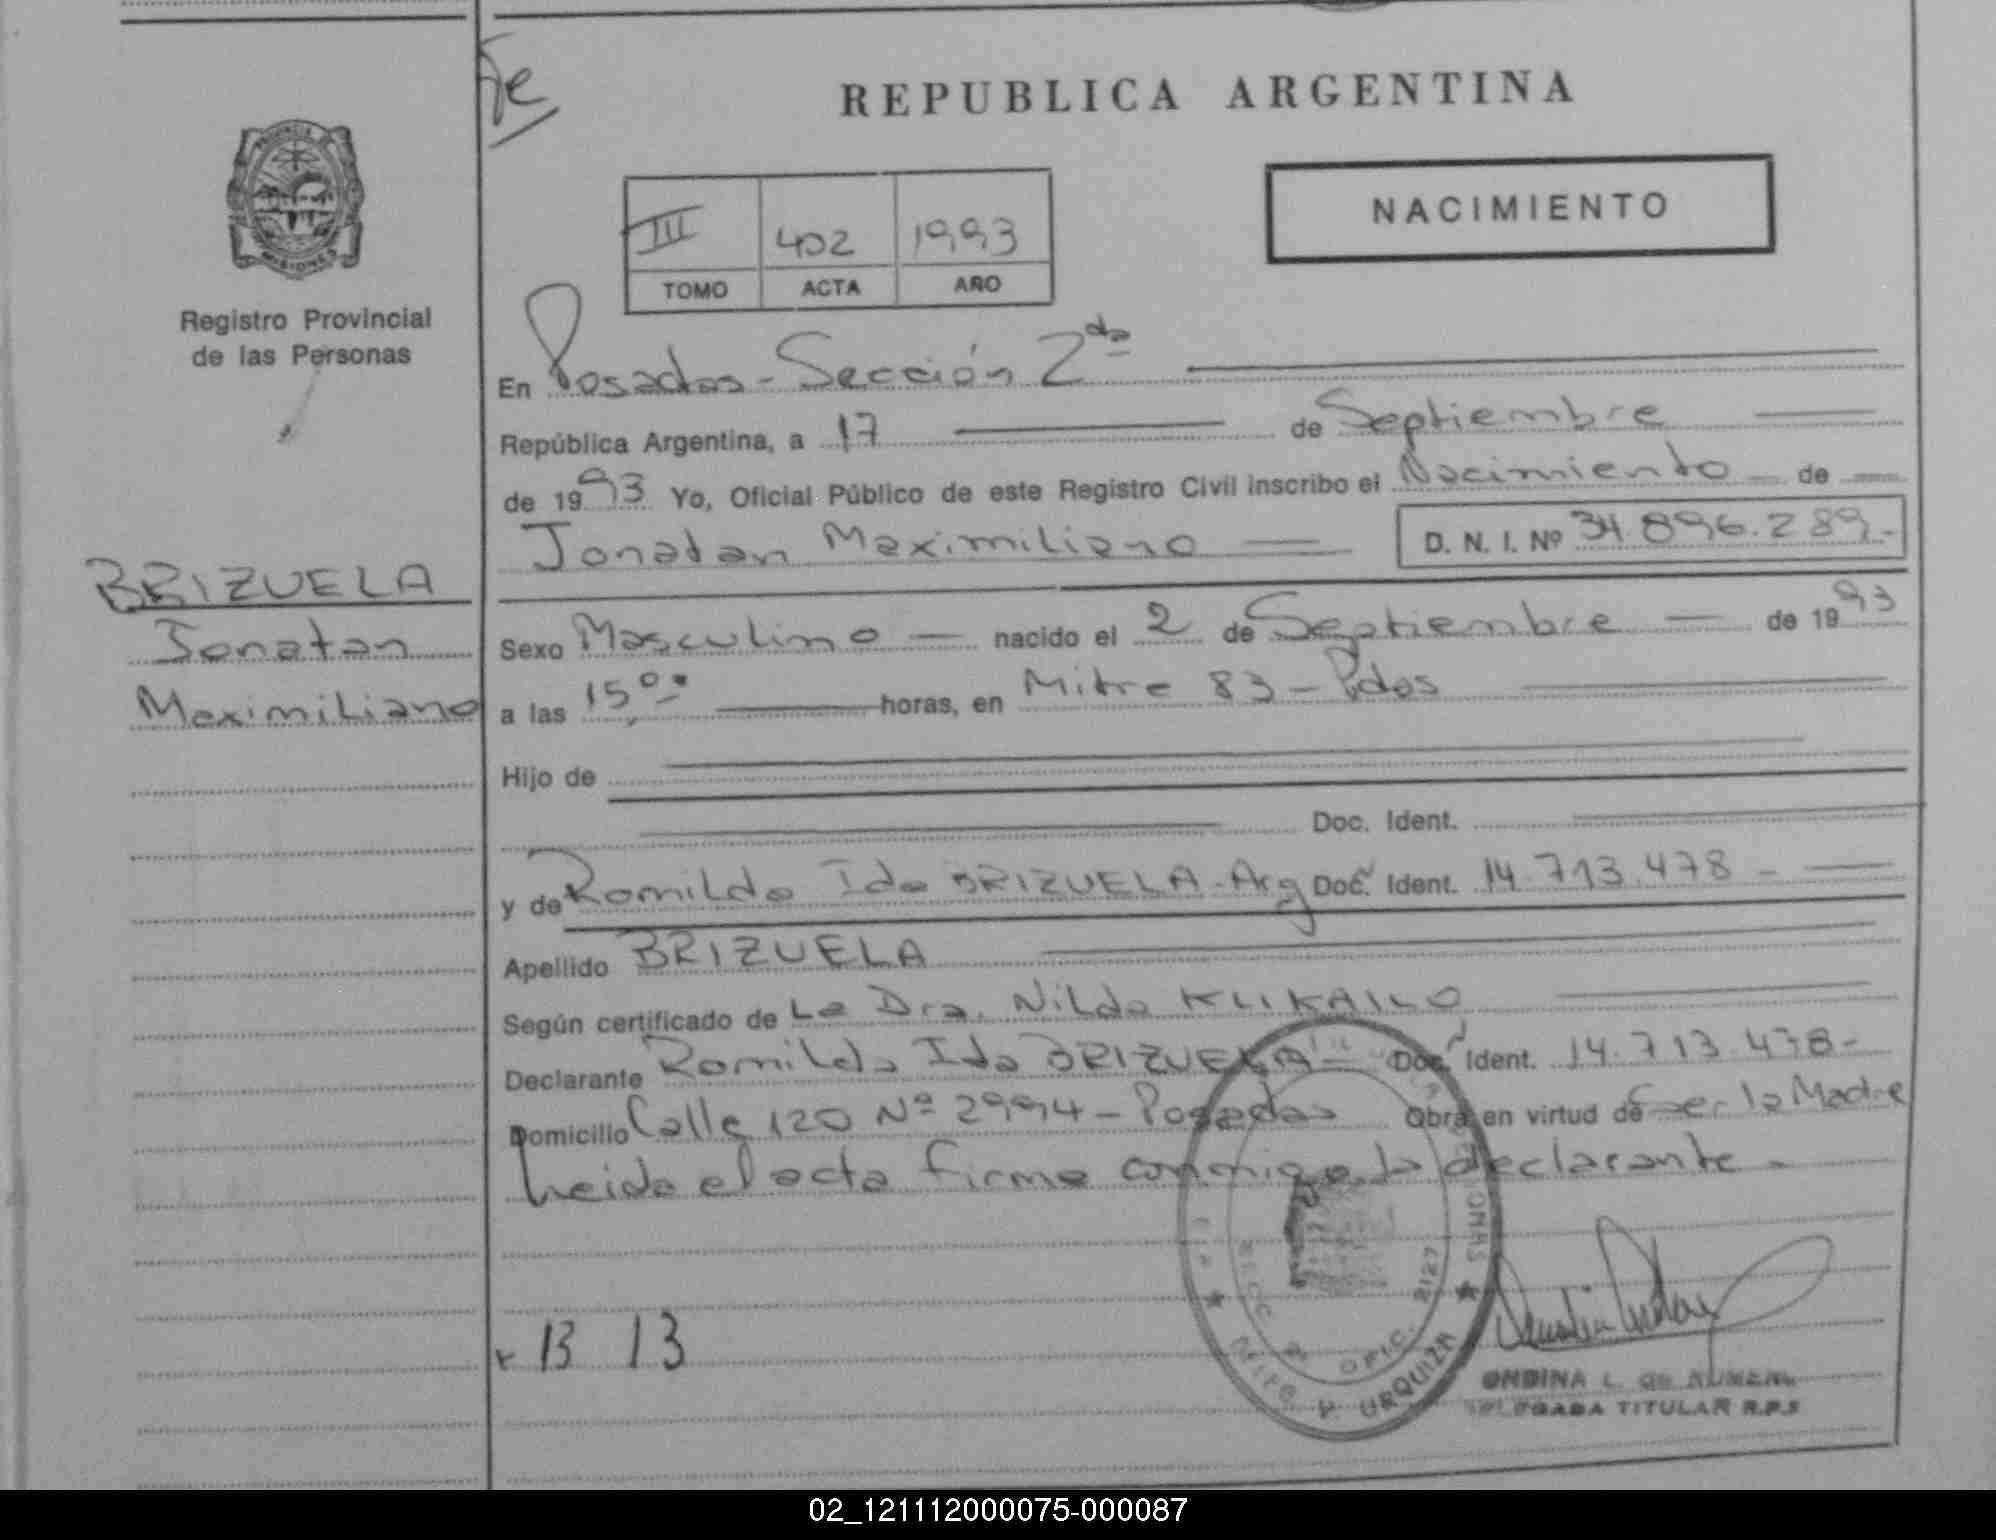 Je
REPUBLICA ARGENTINA
NACIMIENTO
III 402 1993
TOMO ACTA AÑO
PROVINCIA
MISIONES
Registro Provincial
de las Personas
En Posadas - Sección 2da
República Argentina, a 17 de Septiembre
de 1993 Yo, Oficial Público de este Registro Civil inscribo el Nacimiento de
Jonatan Maximiliano D. N. I. Nº 34.896.289.-
BRIZUELA
Jonatan
Maximiliano
Sexo Masculino nacido el 2 de Septiembre de 1993
a las 15,00 horas, en Mitre 83 - Pdas
Hijo de
Doc. Ident.
y de Romilda Ida BRIZUELA - Arg Doc. Ident. 14.713.478 -
Apellido BRIZUELA
Según certificado de La Dra. Nilda KLIKAILO
Declarante Romilda Ida BRIZUELA - Doc. Ident. 14.713.478 -
Domicilio Calle 120 Nº 2994 - Posadas Obra en virtud de Ser la Madre
Leida el acta firma conmigo la declarante.
13 13
SECC OFIC. 2127
URQUIZA
ONDINA L. de
DELEGADA TITULAR R.P.S
02_121112000075-000087